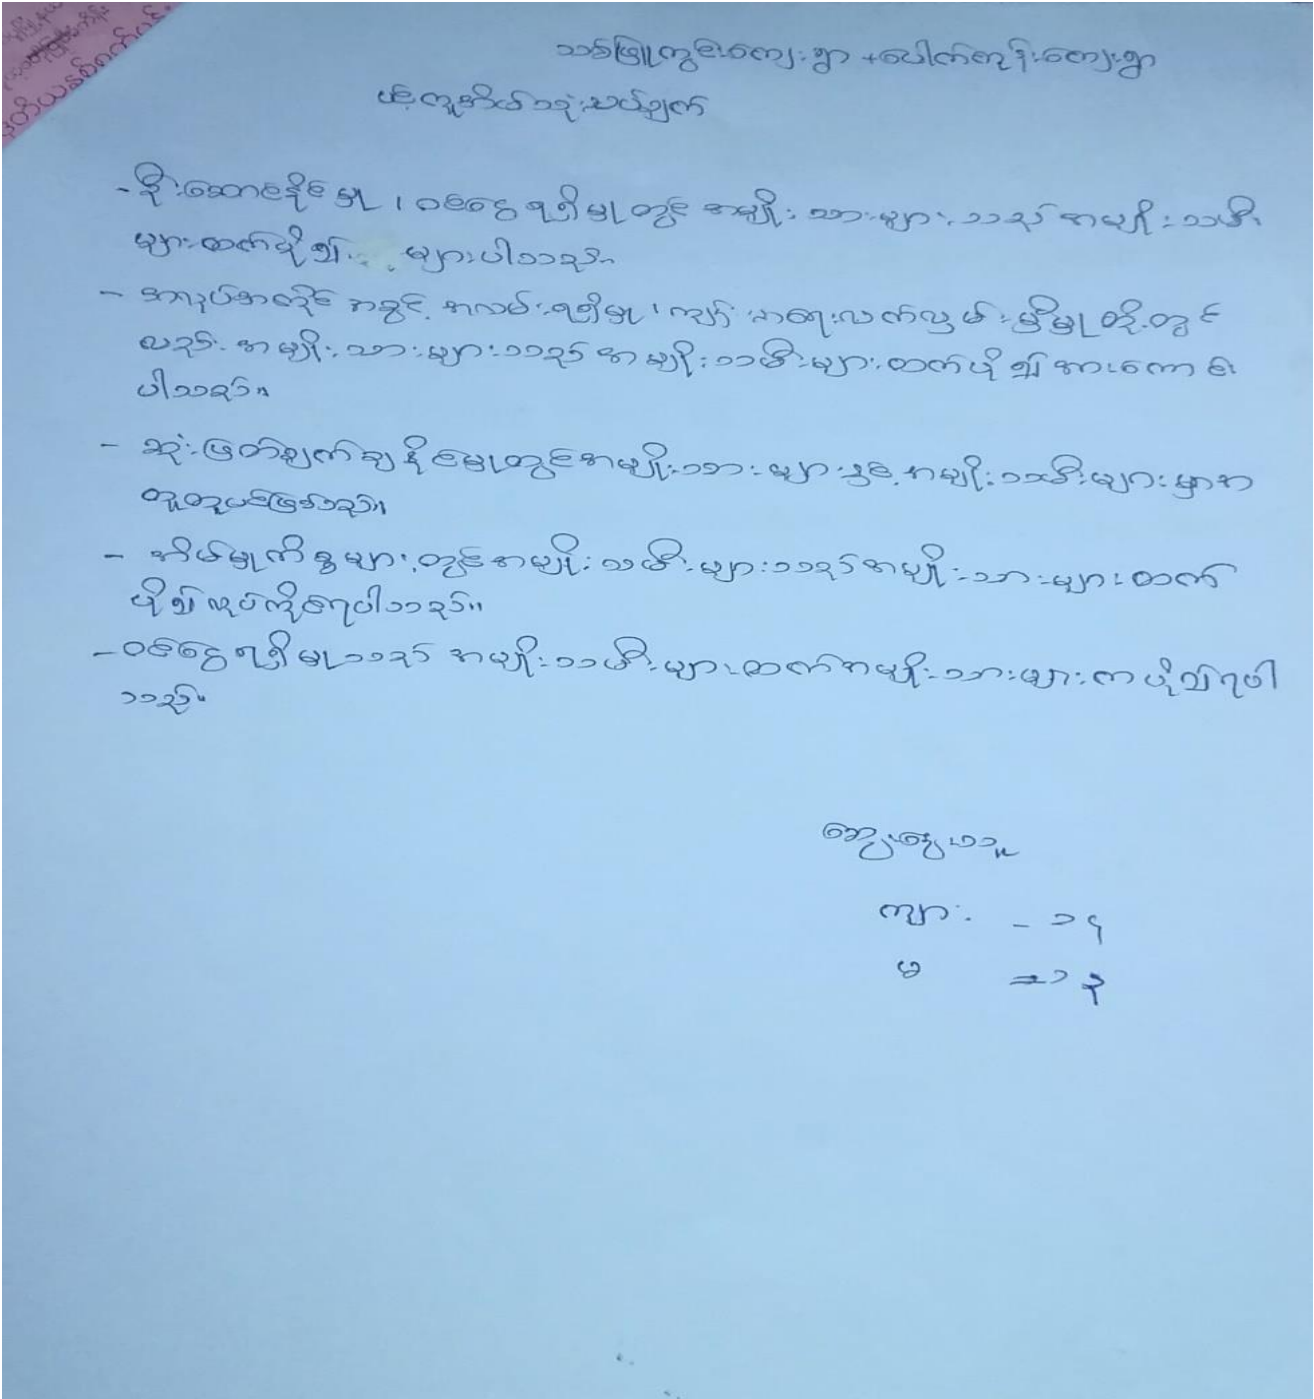 သစ်ဖြူကွင်းကျေးရွာ + ပေါက်ကုန်းကျေးရွာ
ပင့်ကူအိမ်သုံးသပ်ချက်
- ဦးဆောင်နိုင်မှု၊ ဝင်ငွေရရှိမှုတွင် အမျိုးသားများသည် အမျိုးသမီး
များထက်ပို၍ များပါသည်။
- အလုပ်အကိုင် အခွင့်အလမ်းရရှိမှု၊ ကျန်းမာရေးလက်လှမ်းမှီမှုတို့တွင်
လည်း အမျိုးသားများသည် အမျိုးသမီးများထက်ပို၍ အားကောင်း
ပါသည်။
- ဆုံးဖြတ်ချက်ချနိုင်မှုတွင် အမျိုးသားများနှင့် အမျိုးသမီးများမှာ
တူတူပင်ဖြစ်သည်။
- အိမ်မှုကိစ္စများတွင် အမျိုးသမီးများသည် အမျိုးသားများထက်
ပို၍ လုပ်ကိုင်ရပါသည်။
- ဝင်ငွေရရှိမှုသည် အမျိုးသမီးများထက် အမျိုးသားများက ပို၍ရပါ
သည်။
ဆွေးနွေးသူ
ကျား - ၁၄
မ - ၁၃
ဒုတိယနှစ်ရက်